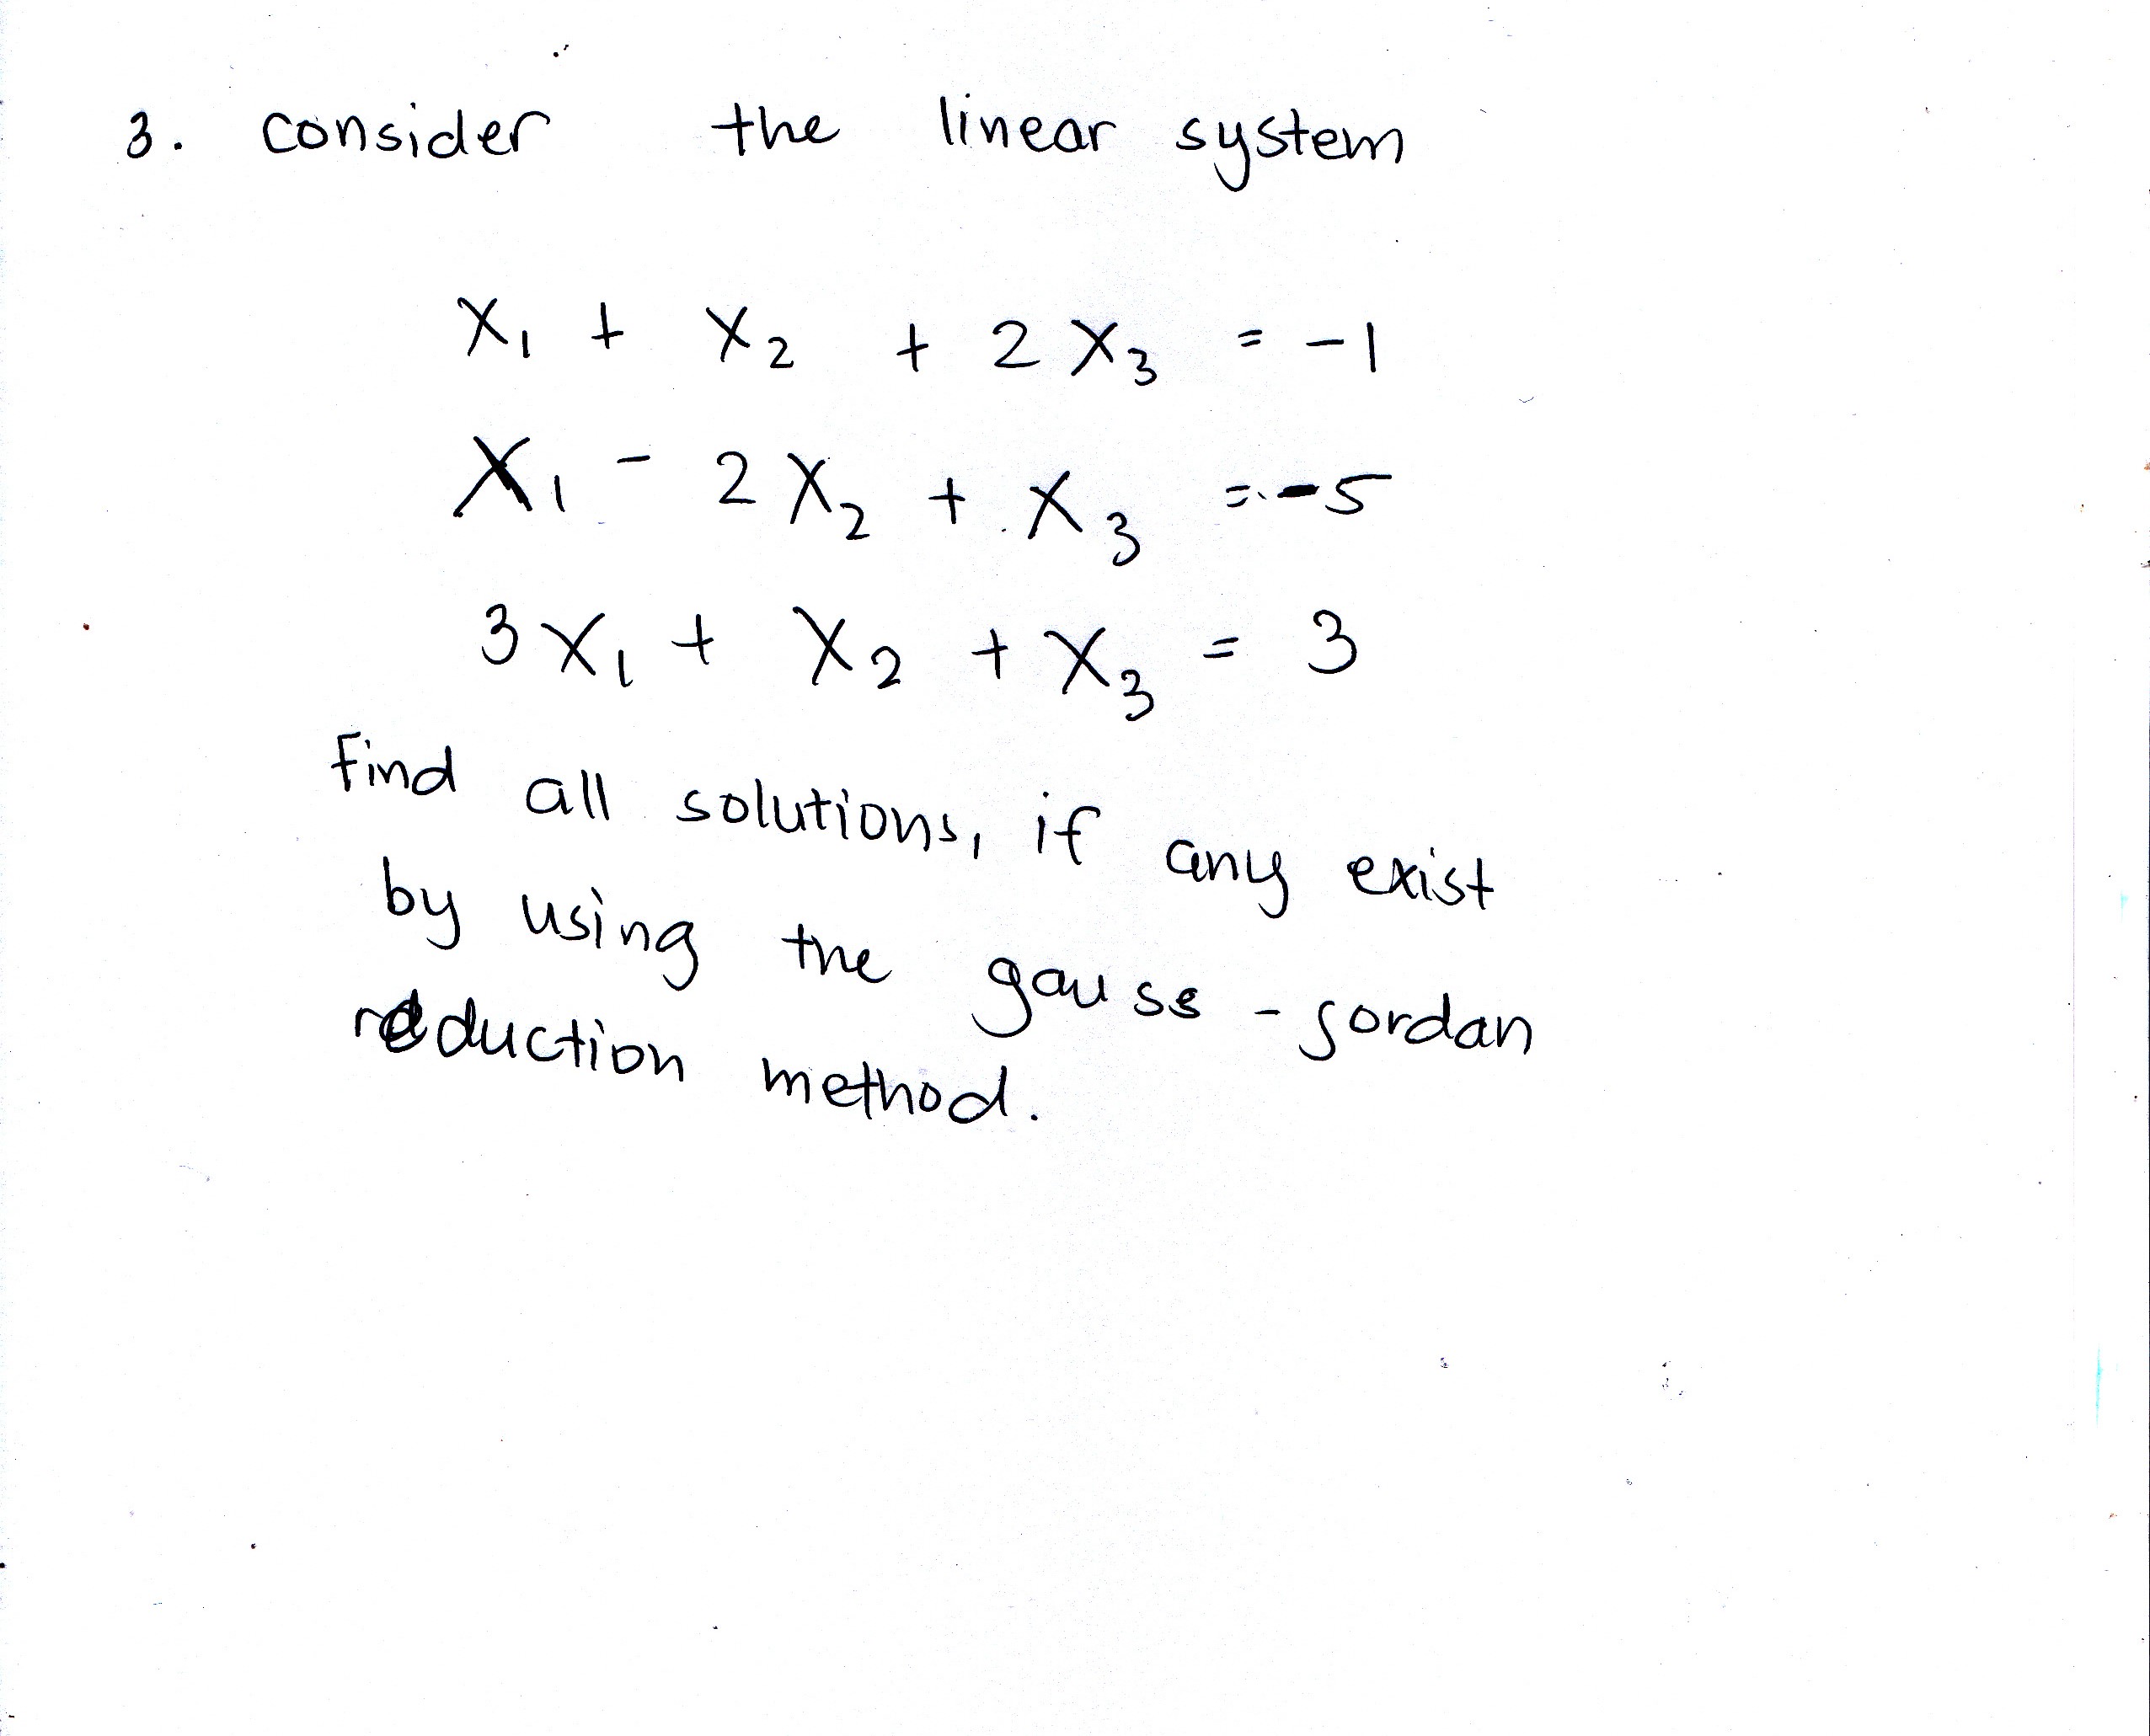 3. consider the linear system
x₁ + x₂ + 2x₃ = -1
x₁ - 2x₂ + x₃ = -5
3x₁ + x₂ + x₃ = 3
Find all solutions, if any exist
by using the gauss - jordan
reduction method.